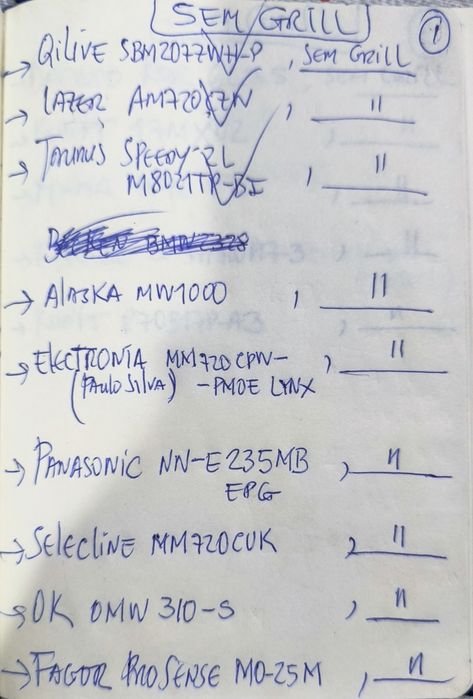 SEM GRILL
1
→ QILIVE SBM2077WH-P, SEM GRILL
→ LAZER AM720 , "
→ TAURUS SPEEDY-2L
M8021TP-BI , "
→ ALASKA MW1000 , "
→ ELECTRONIA MM720CPW- , "
(PAULO SILVA) -PM0E LYNX
→ PANASONIC NN-E235MB , "
EPG
→ SELECLINE MM720CUK , "
→ OK OMW 310-S , "
→ FAGOR PROSENSE MO-25M , "